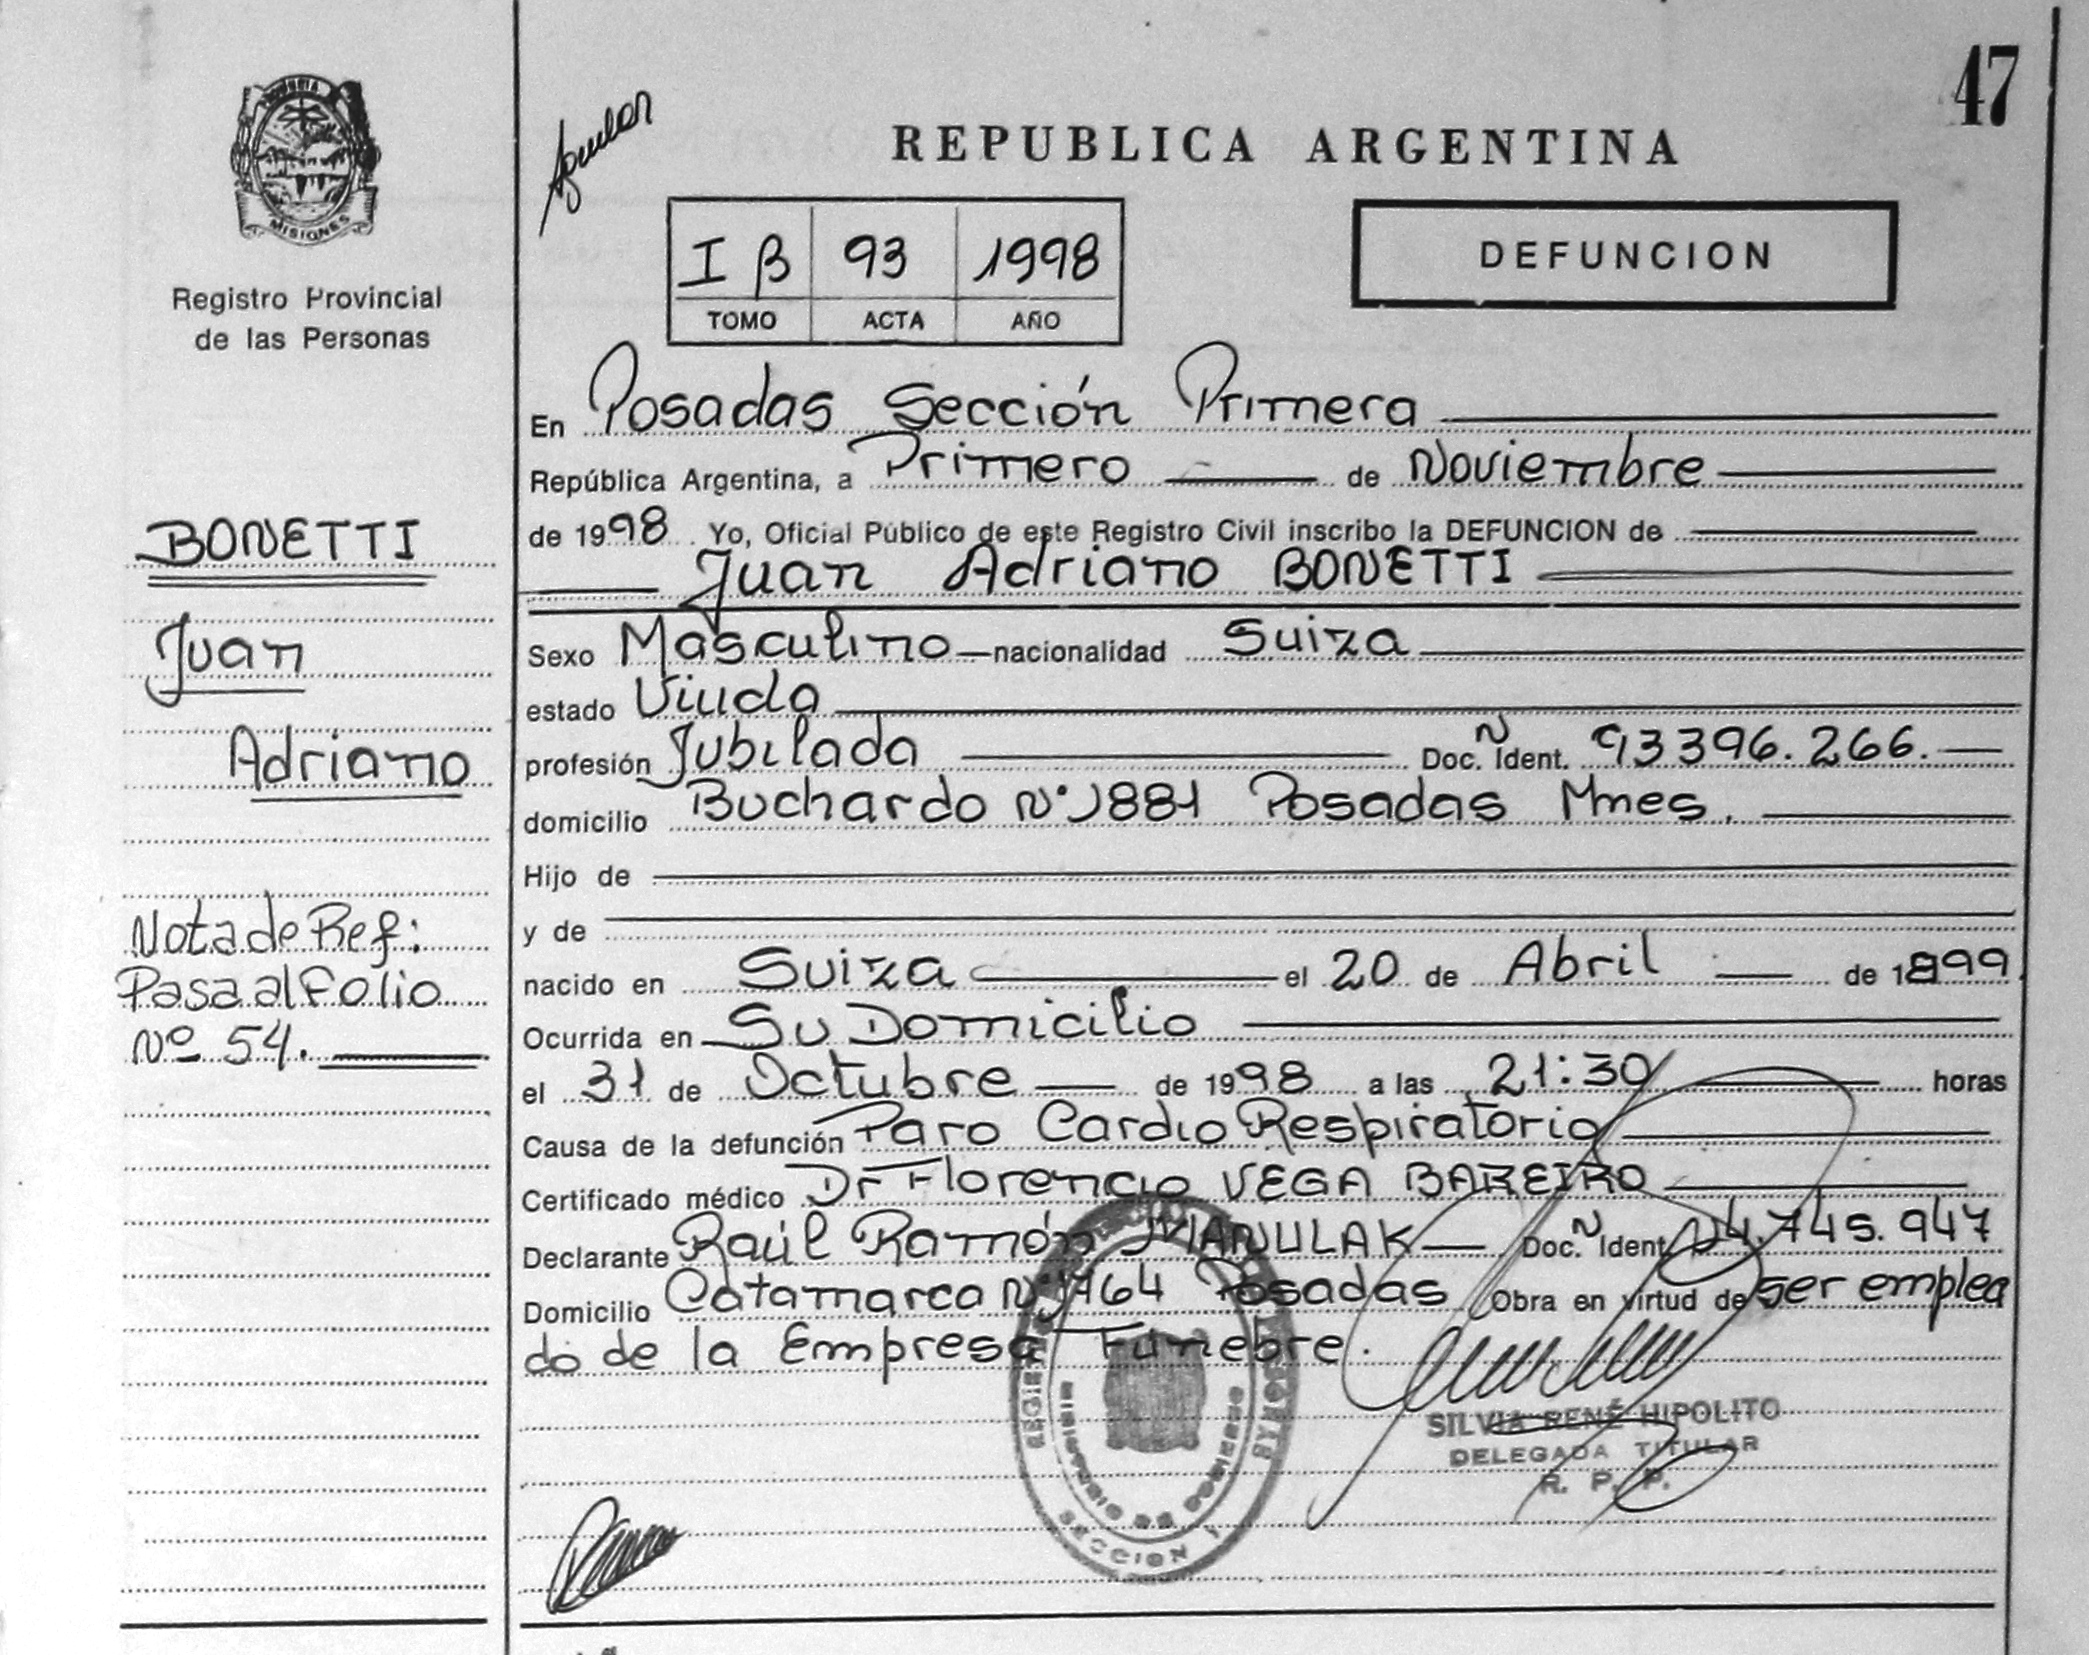 47
MISIONES
Registro Provincial
de las Personas
REPUBLICA ARGENTINA
I B 93 1998
TOMO ACTA AÑO
DEFUNCION
En Posadas Sección Primera
República Argentina, a Primero de Noviembre
de 1998 Yo, Oficial Público de este Registro Civil inscribo la DEFUNCION de
Juan Adriano BONETTI
Sexo Masculino nacionalidad Suiza
estado Viuda
profesión Jubilada Doc. N Ident. 93396.266.
domicilio Buchardo Nº 1881 Posadas Mnes.
Hijo de
y de
nacido en Suiza el 20 de Abril de 1899
Ocurrida en Su Domicilio
el 31 de Octubre de 1998 a las 21:30 horas
Causa de la defunción Paro Cardio Respiratorio
Certificado médico Dr Florencio VEGA BAREIRO
Declarante Raúl Ramón MANULAK Doc. N Ident. 14.745.947
Domicilio Catamarca Nº 1764 Posadas Obra en virtud de ser emplea
do de la Empresa Funebre.
SILVIA RENÉ HIPOLITO
DELEGADA TITULAR
R. P. P.
MINISTERIO DE GOBIERNO
SECCION 1
BONETTI
Juan
Adriano
Nota de Ref:
Pasa al Folio
Nº 54.